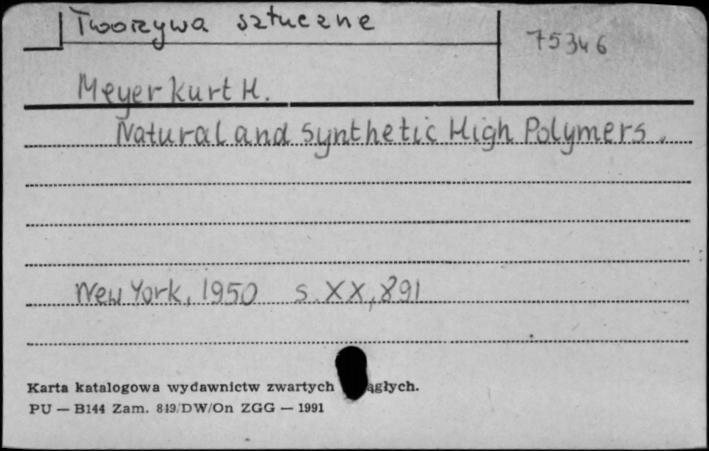 Tworzywa sztuczne
75346
Meyer Kurt H.
Natural and Synthetic High Polymers.
New York, 1950 s. XX, 891
Karta katalogowa wydawnictw zwartych ągłych.
PU — B144 Zam. 819/DW/On ZGG — 1991